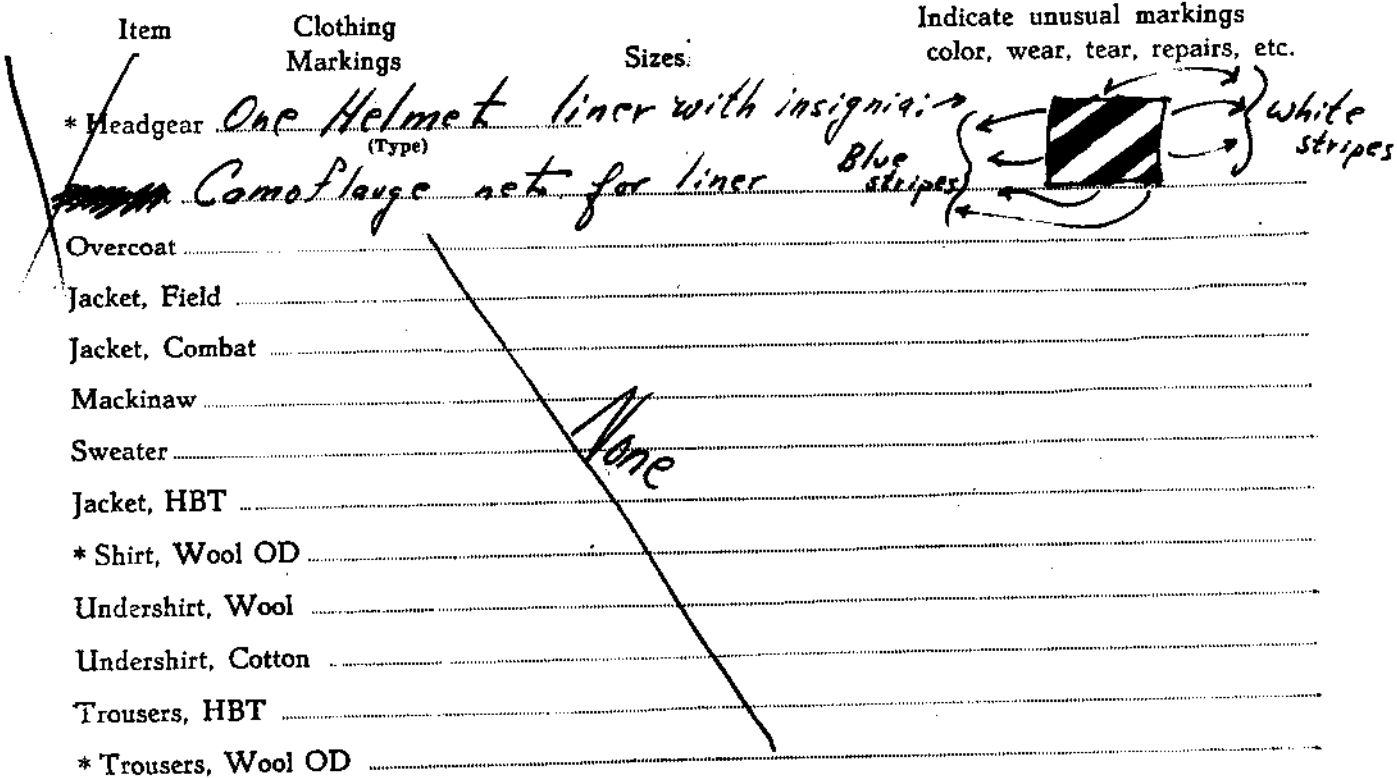 Item Clothing Markings Sizes. Indicate unusual markings
color, wear, tear, repairs, etc.
* Headgear One Helmet liner with insignia: White stripes
(Type)
Camoflauge net for liner Blue stripes
Overcoat
Jacket, Field
Jacket, Combat
Mackinaw
Sweater None
Jacket, HBT
* Shirt, Wool OD
Undershirt, Wool
Undershirt, Cotton
Trousers, HBT
* Trousers, Wool OD